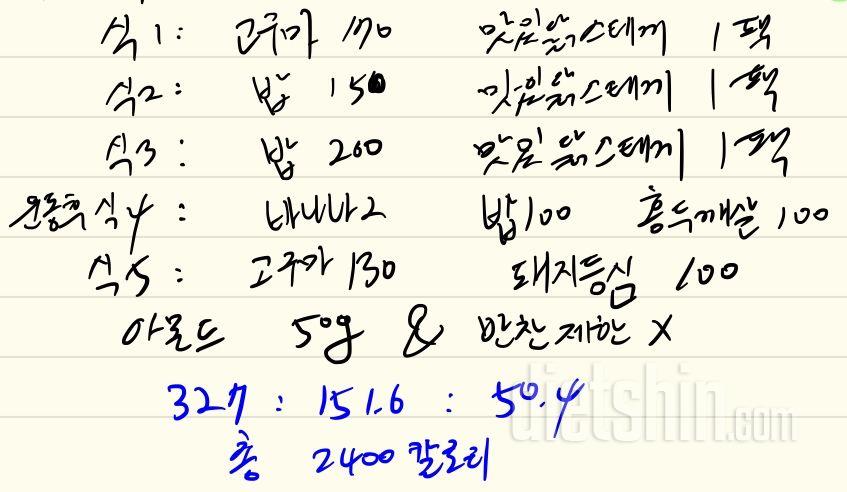 식1: 고구마 170 맛있닭스테끼 1팩
식2: 밥 150 맛있닭스테끼 1팩
식3: 밥 200 맛있닭스테끼 1팩
운동후 식4: 바나나2 밥100 홍두깨살 100
식5: 고구마 130 돼지등심 100
아몬드 50g & 반찬제한 X
327 : 151.6 : 50.4
총 2400 칼로리
dietshin.com